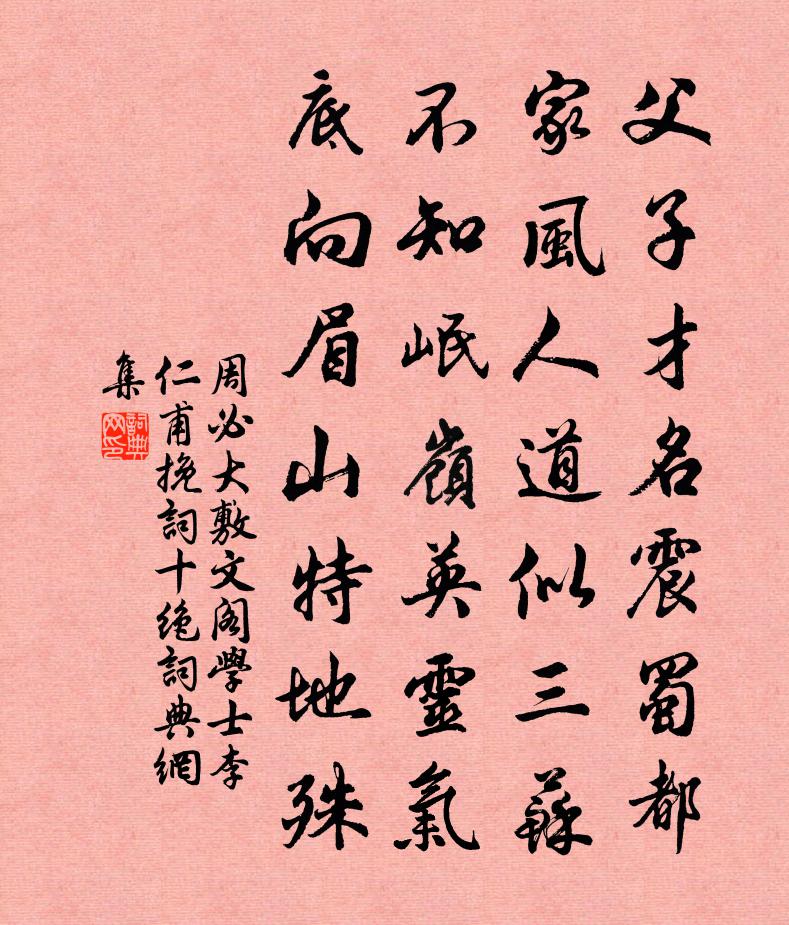 父子才名震蜀都
家風人道似三蘇
不知岷嶺英靈氣
底向眉山特地殊
周必大敷文閣學士李
仁甫挽詞十絶詞典網
集
詞典網印